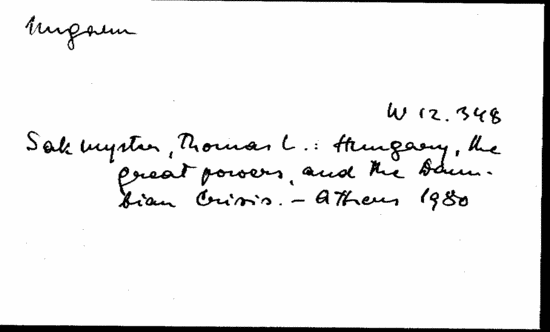 Ungarn
W 12.348
Sakmyster, Thomas L.: Hungary, the
great powers, and the Danu-
bian Crisis. – Athens 1980